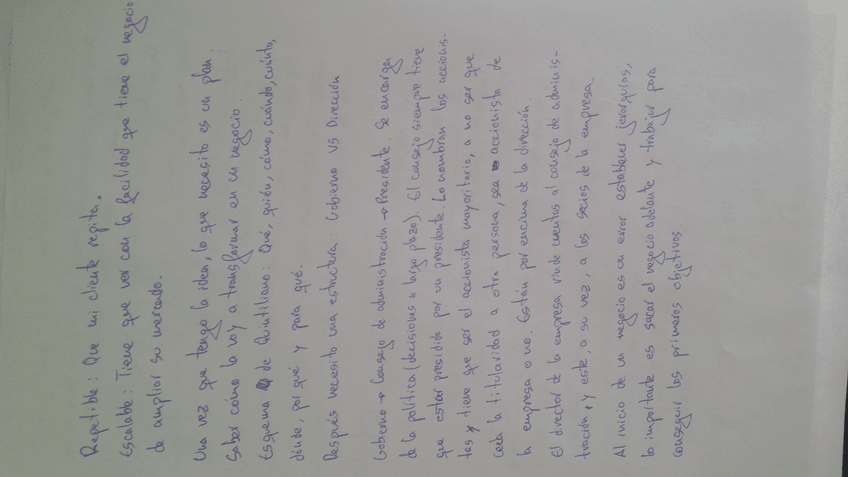 Repetible: Que mi cliente repita.
Escalable: Tiene que ver con la facilidad que tiene el negocio
de ampliar su mercado.
Una vez que tengo la idea, lo que necesito es un plan.
Saber cómo la voy a transformar en un negocio.
Esquema de Quintiliano: Qué, quién, cómo, cuándo, cuánto,
dónde, por qué y para qué.
Después necesito una estructura: Gobierno vs Dirección
Gobierno → Consejo de administración → Presidente. Se encarga
de la política (decisiones a largo plazo). El consejo siempre tiene
que estar presidido por un presidente. Lo nombran los accionis-
tas y tiene que ser el accionista mayoritario, a no ser que
ceda la titularidad a otra persona, sea accionista de
la empresa o no. Están por encima de la dirección.
El director de la empresa rinde cuentas al consejo de adminis-
tración, y este, a su vez, a los socios de la empresa.
Al inicio de un negocio es un error establecer jerarquías,
lo importante es sacar el negocio adelante y trabajar para
conseguir los primeros objetivos.